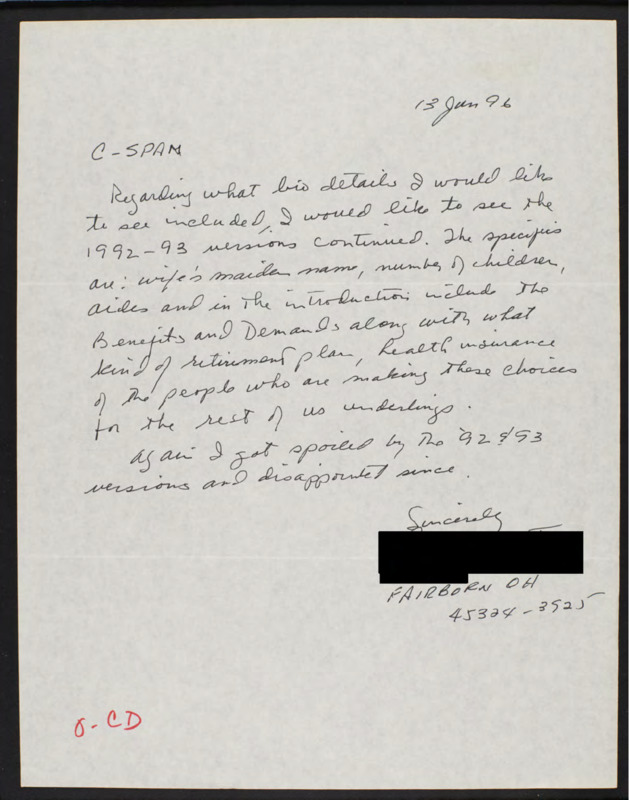 13 Jan 96
C-SPAN
Regarding what bio details I would like
to see included, I would like to see the
1992-93 versions continued. The specifics
are: wife's maiden name, number of children,
aides and in the introduction include the
Benefits and Demands along with what
kind of retirement plan, health insurance
of the people who are making these choices
for the rest of us underlings.
Again I got spoiled by the '92 & 93
versions and disappointed since.
Sincerely
FAIRBORN OH
45324-3925
O-CD